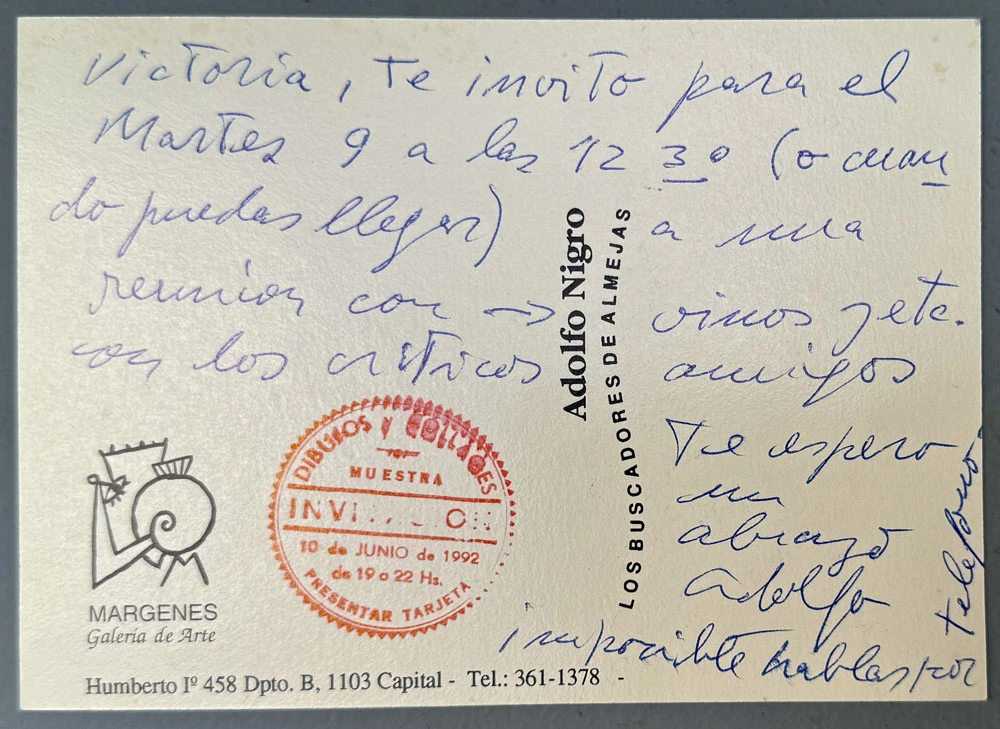 Victoria, te invito para el
Martes 9 a las 12 30 (o cuan
do puedas llegar) a una
reunion con → vinos y etc.
con los criticos amigos
Te espero
un
abrazo
Adolfo
imposible hablar por
telefono
Adolfo Nigro
LOS BUSCADORES DE ALMEJAS
DIBUJOS Y COLLAGES
MUESTRA
10 de JUNIO de 1992
de 19 a 22 Hs.
PRESENTAR TARJETA
MARGENES
Galería de Arte
Humberto Iº 458 Dpto. B, 1103 Capital - Tel.: 361-1378 -